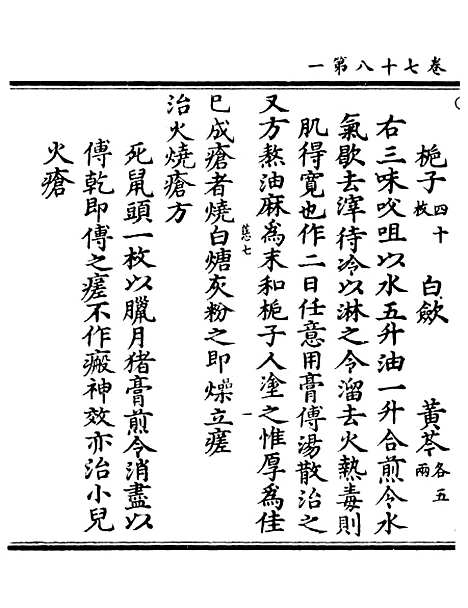 卷七十八第一
梔子四十枚 白歛 黃芩各五兩
右三味㕮咀以水五升油一升合煎令水
氣歇去滓待冷以淋之令溜去火熱毒則
肌得寛也作二日任意用膏傅湯散治之
又方熬油麻為末和梔子人塗之惟厚為佳
已成瘡者燒白糖灰粉之即燥立瘥
治火燒瘡方
死鼠頭一枚以臘月猪膏煎令消盡以
傅乾即傅之瘥不作瘢神效亦治小兒
火瘡